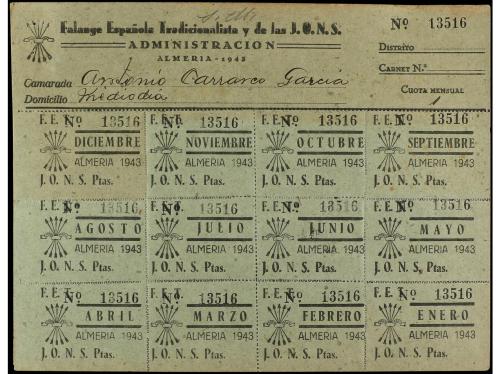 Falange Española Tradicionalista y de las J.O.N.S.
Nº 13516
ADMINISTRACION
ALMERIA - 1943
DISTRITO
CARNET N.º
Camarada Antonio Carrasco Garcia
CUOTA MENSUAL
Domicilio Mediodia
1
F. E. T. Nº 13516 F. E. T. Nº 13516 F. E. T. Nº 13516 F. E. T. Nº 13516
DICIEMBRE NOVIEMBRE OCTUBRE SEPTIEMBRE
ALMERIA 1943 ALMERIA 1943 ALMERIA 1943 ALMERIA 1943
J. O. N. S. Ptas. J. O. N. S. Ptas. J. O. N. S. Ptas. J. O. N. S. Ptas.
F. E. T. Nº 13516 F. E. T. Nº 13516 F. E. T. Nº 13516 F. E. T. Nº 13516
AGOSTO JULIO JUNIO MAYO
ALMERIA 1943 ALMERIA 1943 ALMERIA 1943 ALMERIA 1943
J. O. N. S. Ptas. J. O. N. S. Ptas. J. O. N. S. Ptas. J. O. N. S. Ptas.
F. E. T. Nº 13516 F. E. T. Nº 13516 F. E. T. Nº 13516 F. E. T. Nº 13516
ABRIL MARZO FEBRERO ENERO
ALMERIA 1943 ALMERIA 1943 ALMERIA 1943 ALMERIA 1943
J. O. N. S. Ptas. J. O. N. S. Ptas. J. O. N. S. Ptas. J. O. N. S. Ptas.